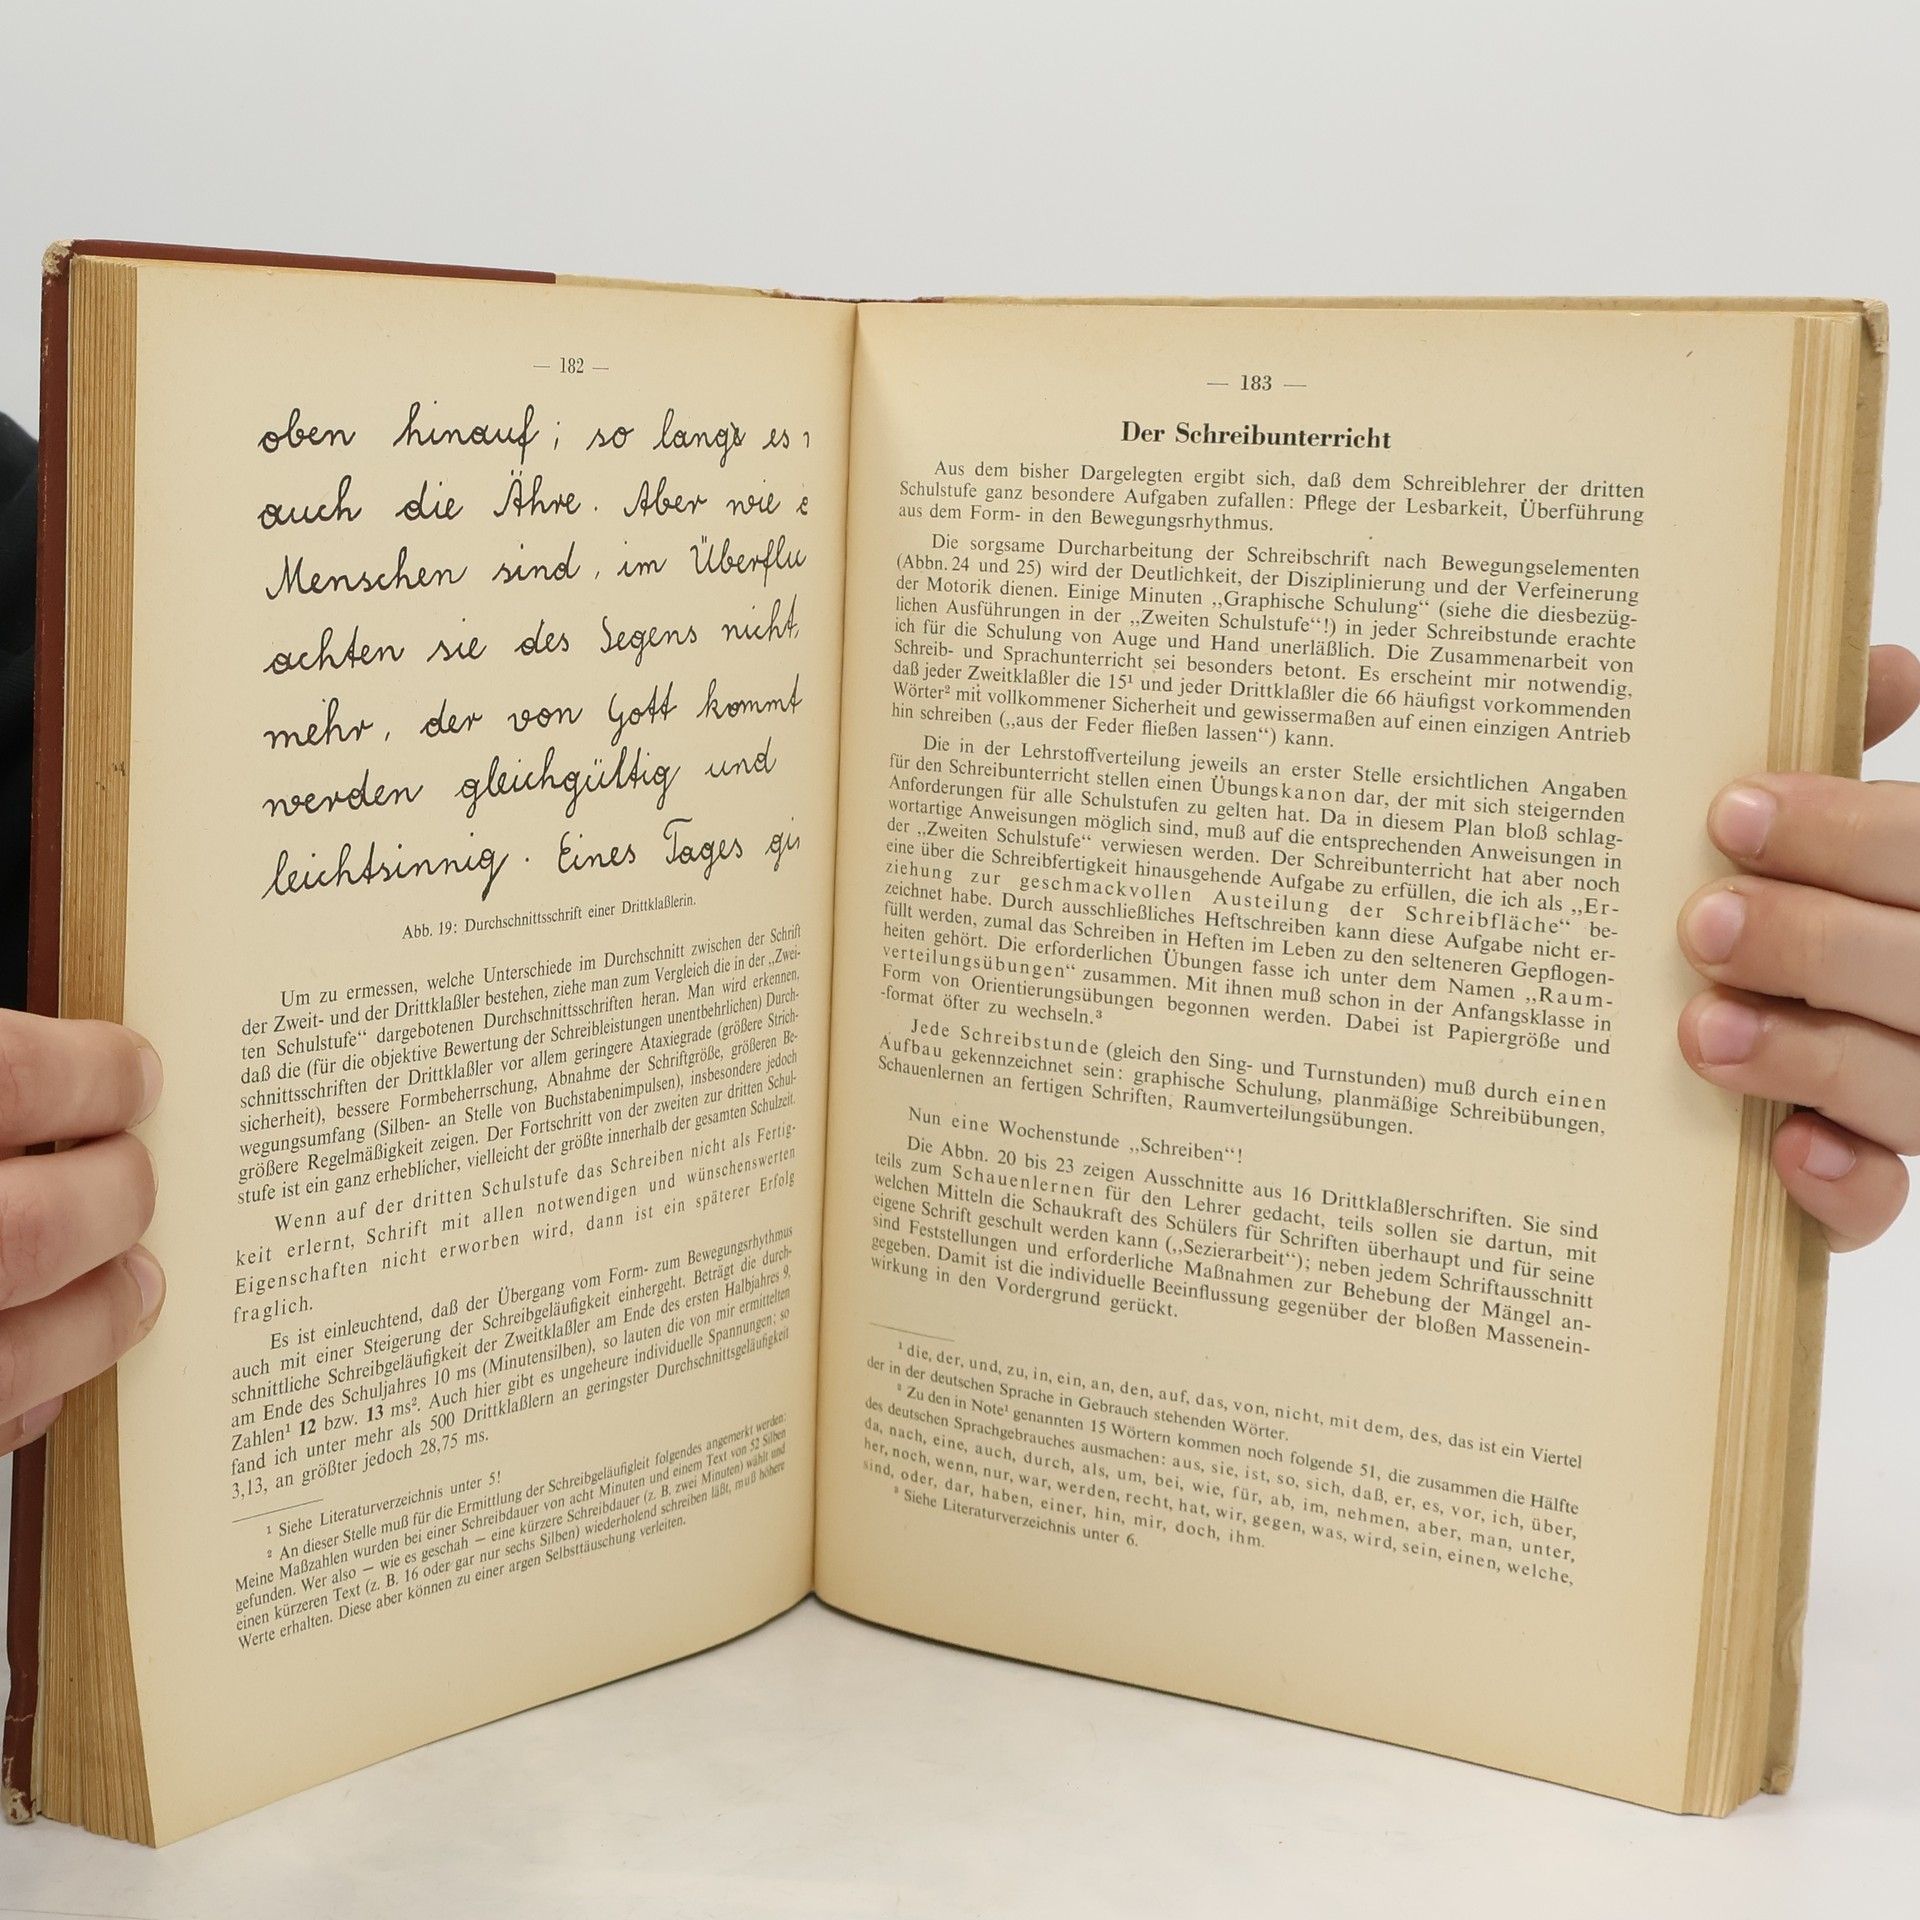 — 182 —
oben hinauf; so lange es
auch die Ähre. Aber wie
Menschen sind, im Überflu
achten sie des Segens nicht,
mehr, der von Gott kommt
werden gleichgültig und
leichtsinnig. Eines Tages
Abb. 19: Durchschnittsschrift einer Drittklaßlerin.
Um zu ermessen, welche Unterschiede im Durchschnitt zwischen der Schrift
der Zweit- und der Drittklaßler bestehen, ziehe man zum Vergleich die in der „Zwei-
ten Schulstufe“ dargebotenen Durchschnittsschriften heran. Man wird erkennen,
daß die (für die objektive Bewertung der Schreibleistungen unentbehrlichen) Durch-
schnittsschriften der Drittklaßler vor allem geringere Ataxiegrade (größere Strich-
sicherheit), bessere Formbeherrschung, Abnahme der Schriftgröße, größeren Be-
wegungsumfang (Silben- an Stelle von Buchstabenimpulsen), insbesondere jedoch
größere Regelmäßigkeit zeigen. Der Fortschritt von der zweiten zur dritten Schul-
stufe ist ein ganz erheblicher, vielleicht der größte innerhalb der gesamten Schulzeit.
Wenn auf der dritten Schulstufe das Schreiben nicht als Fertig-
keit erlernt, Schrift mit allen notwendigen und wünschenswerten
Eigenschaften nicht erworben wird, dann ist ein späterer Erfolg
fraglich.
Es ist einleuchtend, daß der Übergang vom Form- zum Bewegungsrhythmus
auch mit einer Steigerung der Schreibgeläufigkeit einhergeht. Beträgt die durch-
schnittliche Schreibgeläufigkeit der Zweitklaßler am Ende des ersten Halbjahres 9,
am Ende des Schuljahres 10 ms (Minutensilben), so lauten die von mir ermittelten
Zahlen¹ 12 bzw. 13 ms². Auch hier gibt es ungeheure individuelle Spannungen; so
fand ich unter mehr als 500 Drittklaßlern an geringster Durchschnittsgeläufigkeit
3,13, an größter jedoch 28,75 ms.
¹ Siehe Literaturverzeichnis unter 5!
² An dieser Stelle muß für die Ermittlung der Schreibgeläufigleit folgendes angemerkt werden:
Meine Maßzahlen wurden bei einer Schreibdauer von acht Minuten und einem Text von 52 Silben
gefunden. Wer also — wie es geschah — eine kürzere Schreibdauer (z. B. zwei Minuten) wählt und
einen kürzeren Text (z. B. 16 oder gar nur sechs Silben) wiederholend schreiben läßt, muß höhere
Werte erhalten. Diese aber können zu einer argen Selbsttäuschung verleiten.
— 183 —
Der Schreibunterricht
Aus dem bisher Dargelegten ergibt sich, daß dem Schreiblehrer der dritten
Schulstufe ganz besondere Aufgaben zufallen: Pflege der Lesbarkeit, Überführung
aus dem Form- in den Bewegungsrhythmus.
Die sorgsame Durcharbeitung der Schreibschrift nach Bewegungselementen
(Abbn. 24 und 25) wird der Deutlichkeit, der Disziplinierung und der Verfeinerung
der Motorik dienen. Einige Minuten „Graphische Schulung“ (siehe die diesbezüg-
lichen Ausführungen in der „Zweiten Schulstufe“!) in jeder Schreibstunde erachte
ich für die Schulung von Auge und Hand unerläßlich. Die Zusammenarbeit von
Schreib- und Sprachunterricht sei besonders betont. Es erscheint mir notwendig,
daß jeder Zweitklaßler die 15¹ und jeder Drittklaßler die 66 häufigst vorkommenden
Wörter² mit vollkommener Sicherheit und gewissermaßen auf einen einzigen Antrieb
hin schreiben („aus der Feder fließen lassen“) kann.
Die in der Lehrstoffverteilung jeweils an erster Stelle ersichtlichen Angaben
für den Schreibunterricht stellen einen Übungskanon dar, der mit sich steigernden
Anforderungen für alle Schulstufen zu gelten hat. Da in diesem Plan bloß schlag-
wortartige Anweisungen möglich sind, muß auf die entsprechenden Anweisungen in
der „Zweiten Schulstufe“ verwiesen werden. Der Schreibunterricht hat aber noch
eine über die Schreibfertigkeit hinausgehende Aufgabe zu erfüllen, die ich als „Er-
ziehung zur geschmackvollen Austeilung der Schreibfläche“ be-
zeichnet habe. Durch ausschließliches Heftschreiben kann diese Aufgabe nicht er-
füllt werden, zumal das Schreiben in Heften im Leben zu den selteneren Gepflogen-
heiten gehört. Die erforderlichen Übungen fasse ich unter dem Namen „Raum-
verteilungsübungen“ zusammen. Mit ihnen muß schon in der Anfangsklasse in
Form von Orientierungsübungen begonnen werden. Dabei ist Papiergröße und
-format öfter zu wechseln.³
Jede Schreibstunde (gleich den Sing- und Turnstunden) muß durch einen
Aufbau gekennzeichnet sein: graphische Schulung, planmäßige Schreibübungen,
Schauenlernen an fertigen Schriften, Raumverteilungsübungen.
Nun eine Wochenstunde „Schreiben“!
Die Abbn. 20 bis 23 zeigen Ausschnitte aus 16 Drittklaßlerschriften. Sie sind
teils zum Schauenlernen für den Lehrer gedacht, teils sollen sie dartun, mit
welchen Mitteln die Schaukraft des Schülers für Schriften überhaupt und für seine
eigene Schrift geschult werden kann („Sezierarbeit“); neben jedem Schriftausschnitt
sind Feststellungen und erforderliche Maßnahmen zur Behebung der Mängel an-
gegeben. Damit ist die individuelle Beeinflussung gegenüber der bloßen Massenein-
wirkung in den Vordergrund gerückt.
¹ die, der, und, zu, in, ein, an, den, auf, das, von, nicht, mit dem, des, das ist ein Viertel
der in der deutschen Sprache in Gebrauch stehenden Wörter.
² Zu den in Note¹ genannten 15 Wörtern kommen noch folgende 51, die zusammen die Hälfte
des deutschen Sprachgebrauches ausmachen: aus, sie, ist, so, sich, daß, er, es, vor, ich, über,
da, nach, eine, auch, durch, als, um, bei, wie, für, ab, im, nehmen, aber, man, unter,
her, noch, wenn, nur, war, werden, recht, hat, wir, gegen, was, wird, sein, einen, welche,
sind, oder, dar, haben, einer, hin, mir, doch, ihm.
³ Siehe Literaturverzeichnis unter 6.